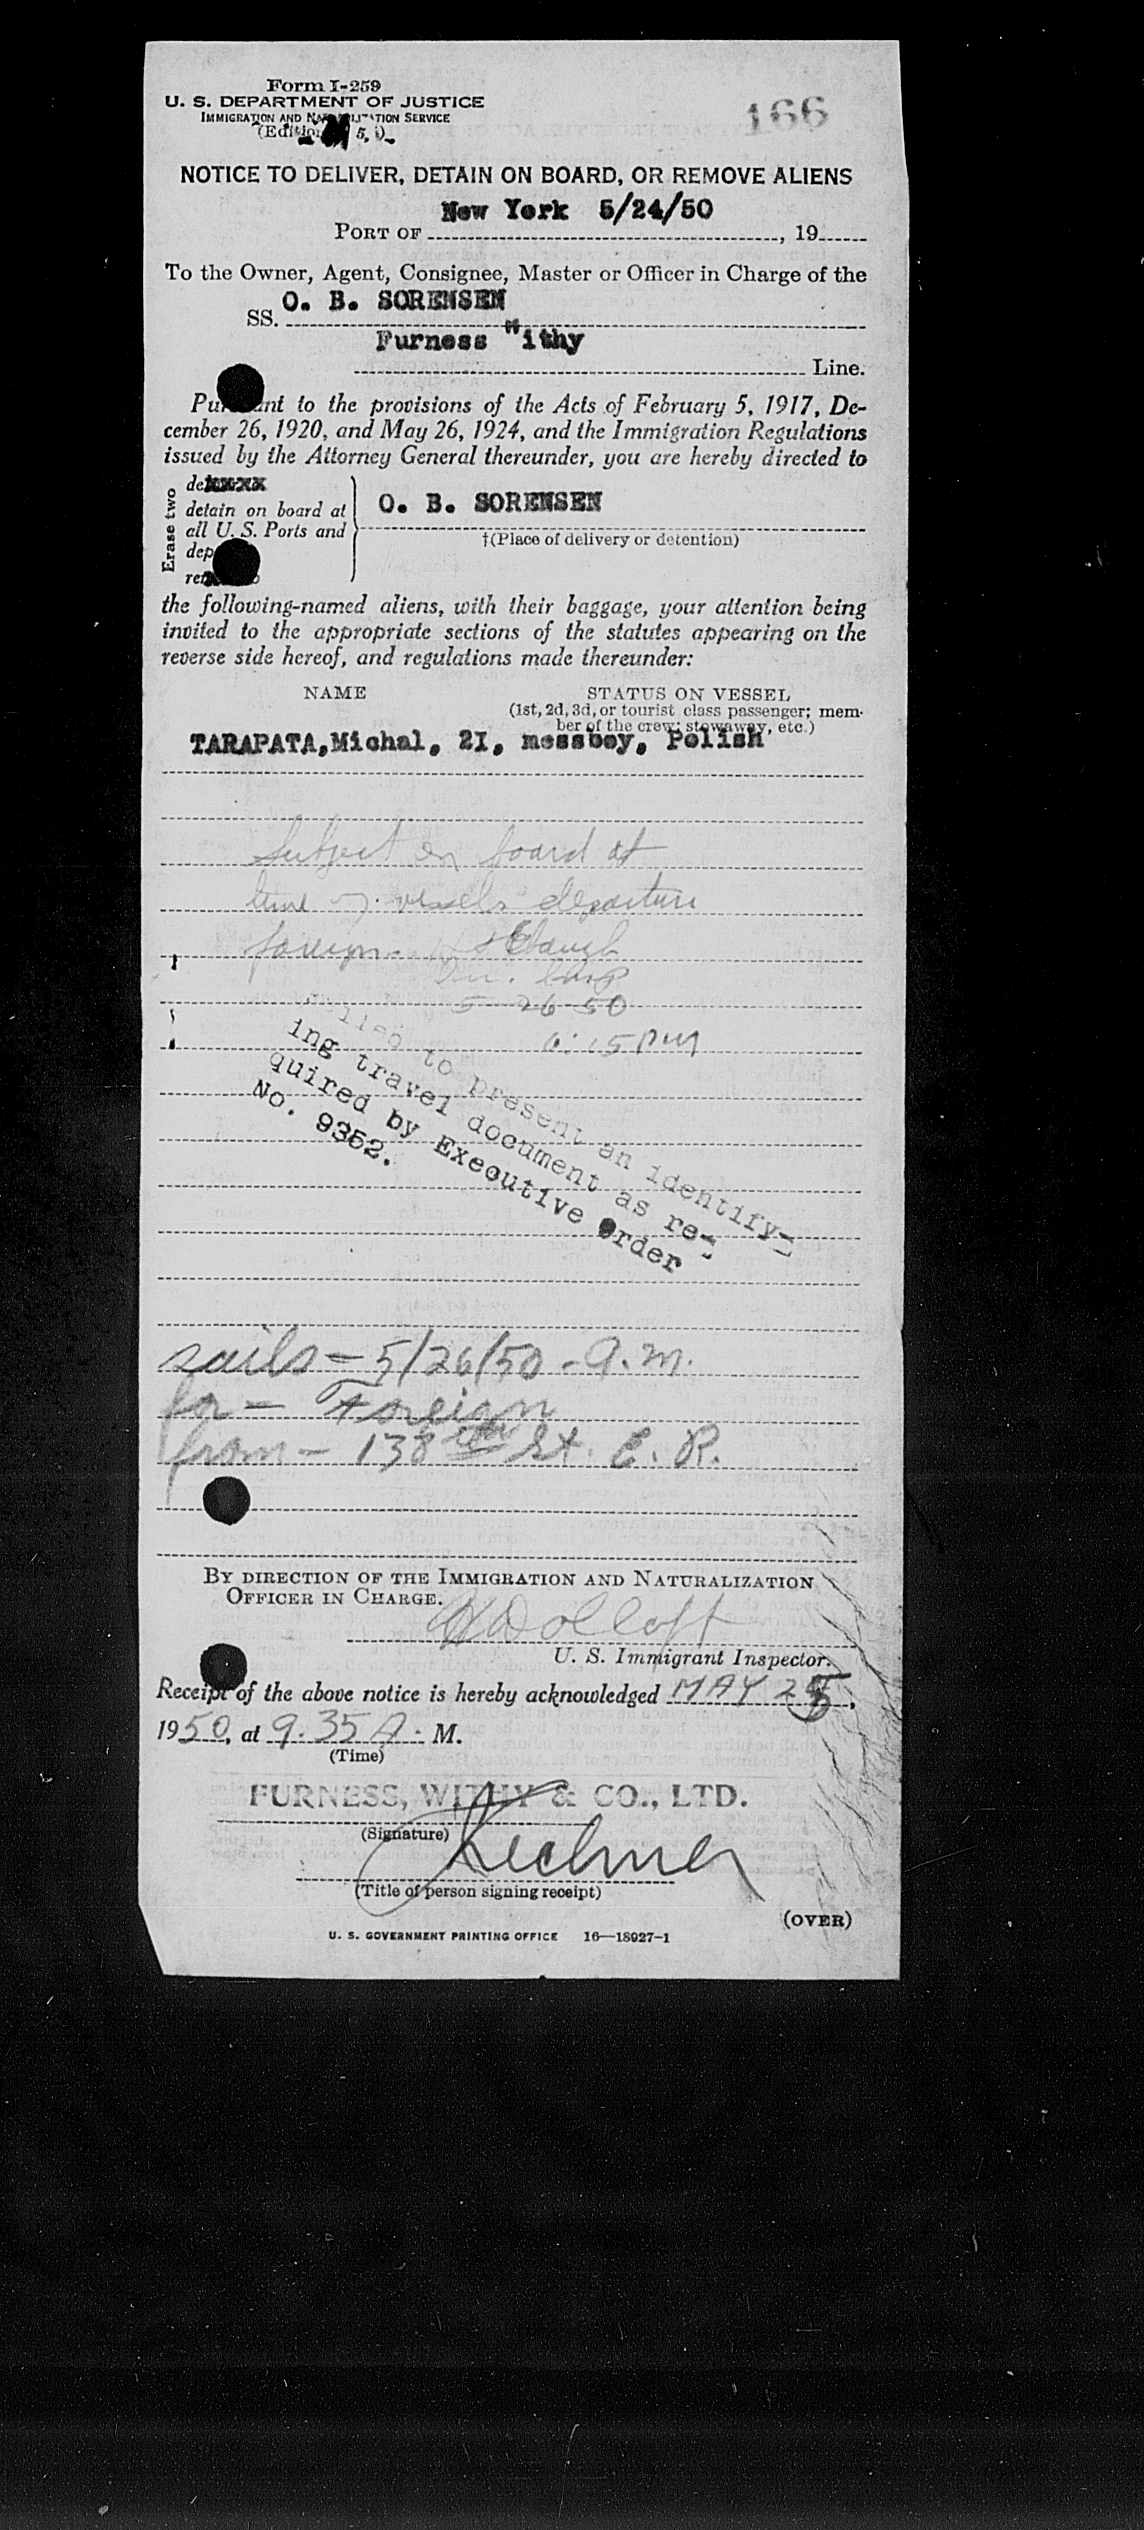 Form I-259
U. S. DEPARTMENT OF JUSTICE
IMMIGRATION AND NATURALIZATION SERVICE
(Edition
166
NOTICE TO DELIVER, DETAIN ON BOARD, OR REMOVE ALIENS
New York 5/24/50
PORT OF , 19
To the Owner, Agent, Consignee, Master or Officer in Charge of the
O. B. SORENSEN
SS.
Furness Withy
Line.
Pursuant to the provisions of the Acts of February 5, 1917, De-
cember 26, 1920, and May 26, 1924, and the Immigration Regulations
issued by the Attorney General thereunder, you are hereby directed to
Erase two
dexxxx
detain on board at
all U. S. Ports and
dep
O. B. SORENSEN
†(Place of delivery or detention)
the following-named aliens, with their baggage, your attention being
invited to the appropriate sections of the statutes appearing on the
reverse side hereof, and regulations made thereunder:
NAME STATUS ON VESSEL
(1st, 2d, 3d, or tourist class passenger; mem-
ber of the crew; stowaway, etc.)
TARAPATA, Michal, 21, messboy, Polish
Subject on board at
time of vessels departure
foreign -
5-26-50
6:15 PM
Failed to present an identify-
ing travel document as re-
quired by Executive Order
No. 9352.
sails - 5/26/50 - A.M.
for - Foreign
from - 138th St. E. R.
BY DIRECTION OF THE IMMIGRATION AND NATURALIZATION
OFFICER IN CHARGE.
U. S. Immigrant Inspector.
Receipt of the above notice is hereby acknowledged MAY 25,
1950, at 9.35 A. M.
(Time)
FURNESS, WITHY & CO., LTD.
(Signature)
(Title of person signing receipt)
(OVER)
U. S. GOVERNMENT PRINTING OFFICE 16—18927-1